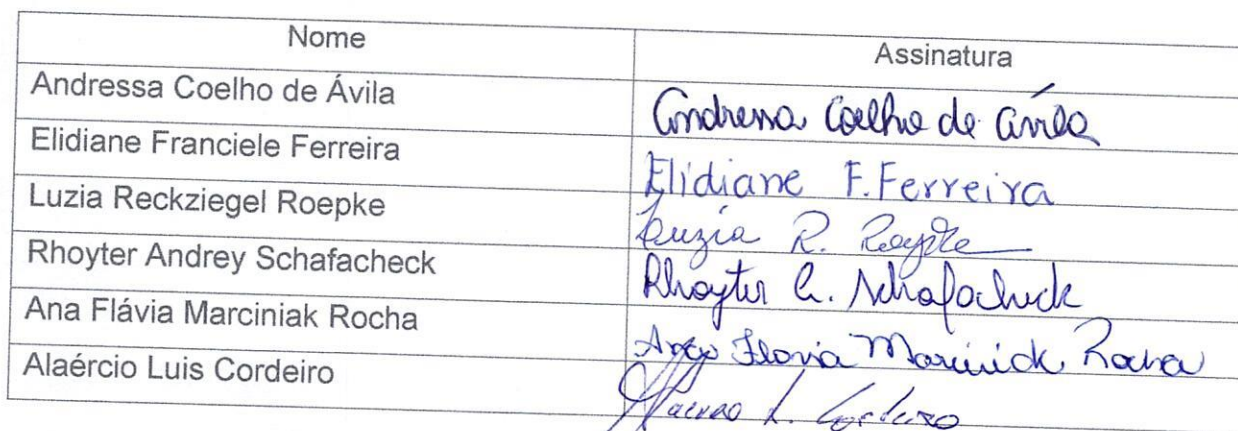 Nome Assinatura
Andressa Coelho de Ávila Andressa Coelho de Ávila
Elidiane Franciele Ferreira Elidiane F. Ferreira
Luzia Reckziegel Roepke Luzia R. Roepke
Rhoyter Andrey Schafacheck Rhoyter A. Schafacheck
Ana Flávia Marciniak Rocha Ana Flavia Marciniak Rocha
Alaércio Luis Cordeiro Alaercio L. Cordeiro